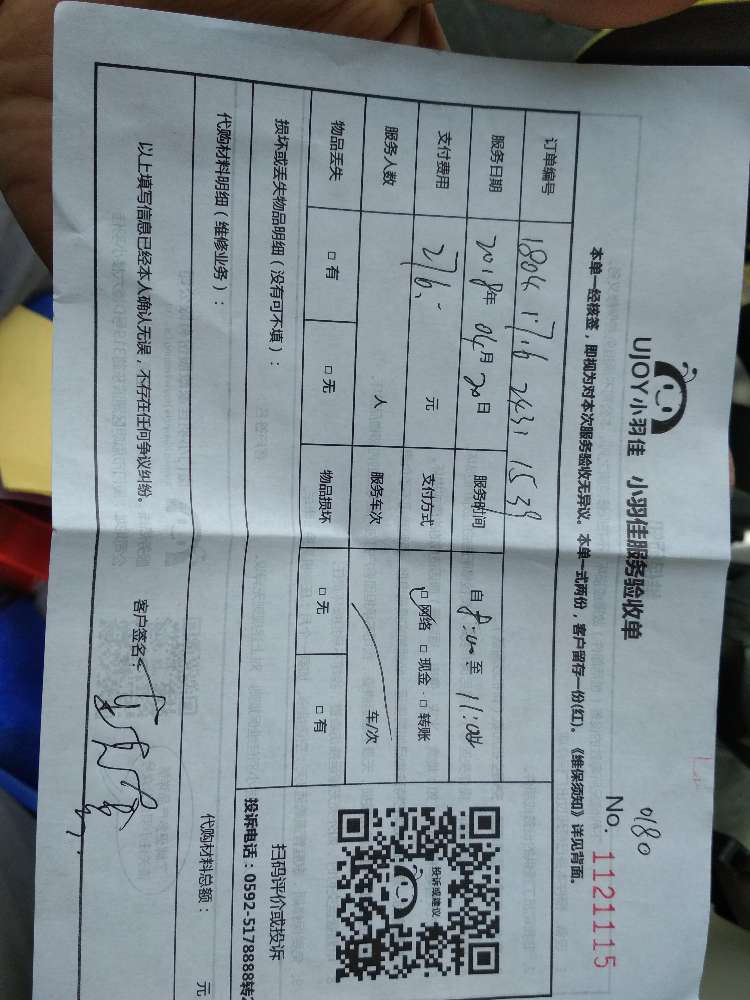 UJOY小羽佳 小羽佳服务验收单
0180
No. 1121115
本单一经核签，即视为对本次服务验收无异议。本单一式两份，客户留存一份(红)。《维保须知》详见背面。
订单编号 1804 1716 2431 1539
服务日期 2018年 04月 20日 服务时间 自 8:00 至 11:00
支付费用 276. 元 支付方式 ☑ 网络 □ 现金 □ 转账
服务人数 人 服务车次 车/次
物品丢失 □ 有 □ 无 物品损坏 □ 无 □ 有
投诉或建议
扫码评价或投诉
投诉电话：0592-5178888转2
损坏或丢失物品明细（没有可不填）：
代购材料明细（维修业务）： 代购材料总额： 元
以上填写信息已经本人确认无误，不存在任何争议纠纷。 客户签名：